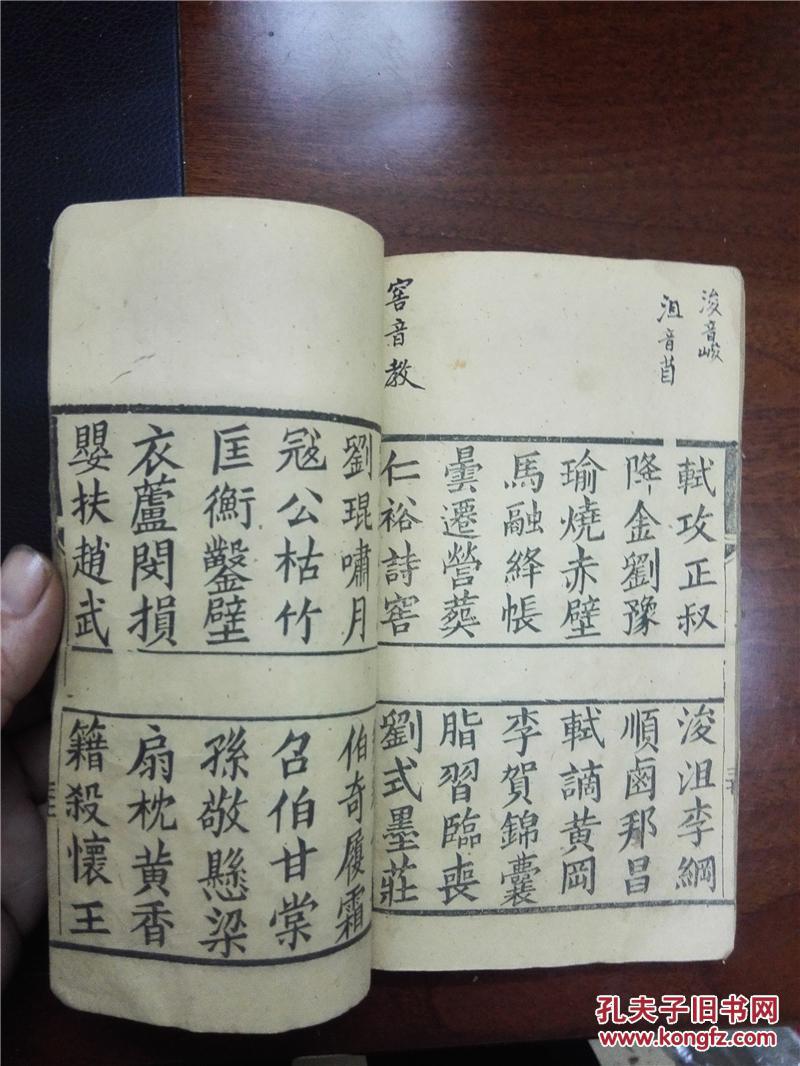 浚音峻
沮音
窖音教
軾攻正叔
浚沮李綱
降金劉豫
順鹵邦昌
瑜燒赤壁
軾謫黃岡
馬融絳帳
李賀錦囊
曇遷營葬
脂習臨喪
仁裕詩窖
劉式墨莊
劉琨嘯月
伯奇履霜
冦公枯竹
召伯甘棠
匡衡鑿壁
孫敬懸梁
衣蘆閔損
扇枕黃香
嬰扶趙武
籍殺懷王
孔夫子旧书网
www.kongfz.com